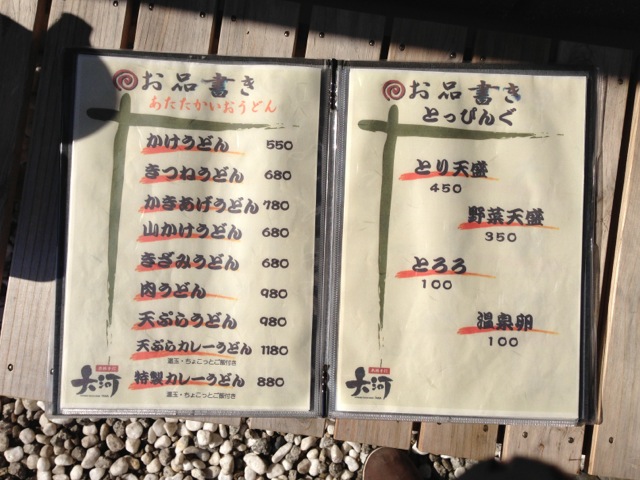 お品書き
あたたかいおうどん
かけうどん 550
きつねうどん 680
かきあげうどん 780
山かけうどん 680
きざみうどん 680
肉うどん 980
天ぷらうどん 980
天ぷらカレーうどん 1180
温玉・ちょこっとご飯付き
特製カレーうどん 880
温玉・ちょこっとご飯付き
大河
お品書き
とっぴんぐ
とり天盛
450
野菜天盛
350
とろろ
100
温泉卵
100
大河